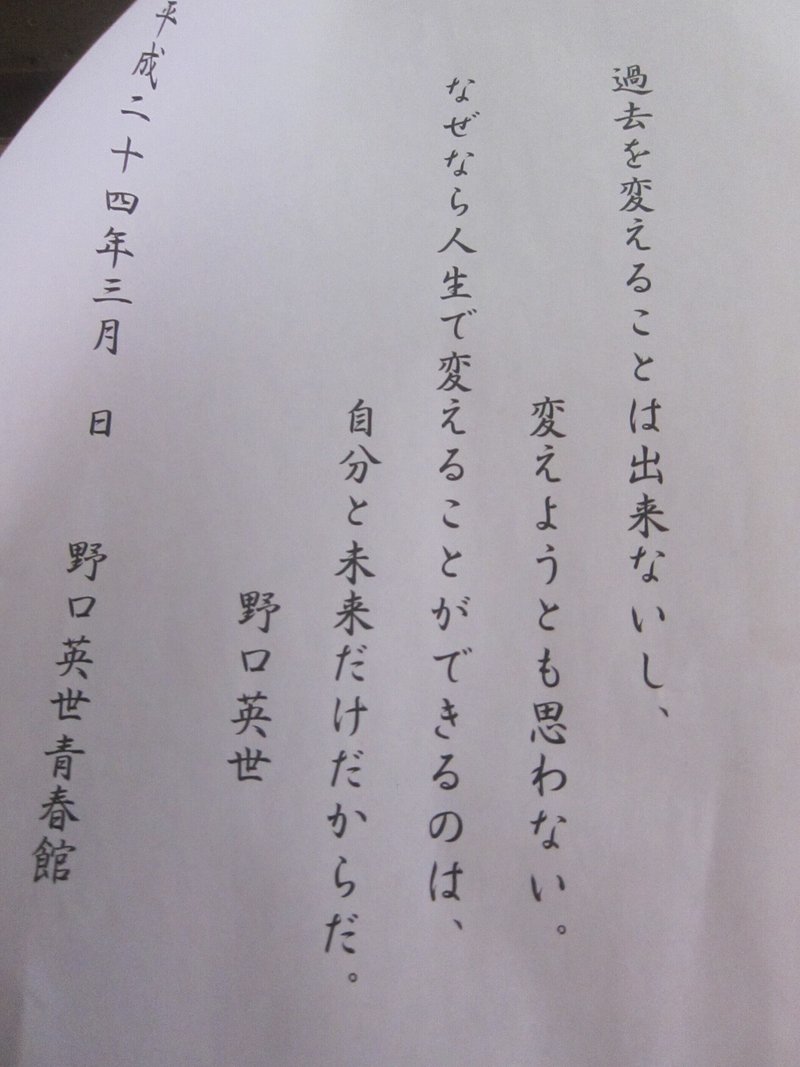 過去を変えることは出来ないし、
変えようとも思わない。
なぜなら人生で変えることができるのは、
自分と未来だけだからだ。
野口英世
平成二十四年三月　日　野口英世青春館